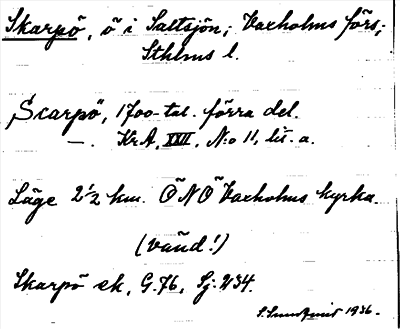 Skarpö, ö i Saltsjön; Vaxholms förs;
Sthlms l.
Scarpö, 1700-tal. förra del.
—. Kr.A, XXII, N:o 11, lit. a.
Läge 2½ km. ÖNÖ Vaxholms kyrka
(vänd!)
Skarpö ek, G.76, Sj. 234.
S. Sundqvist 1936.